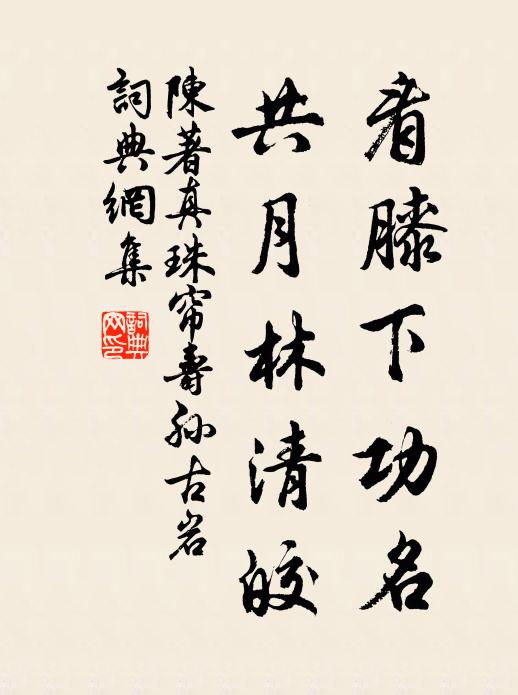 看膝下功名
共月林清皎
陳著真珠帘壽孙古岩
詞典網集
詞典
网印